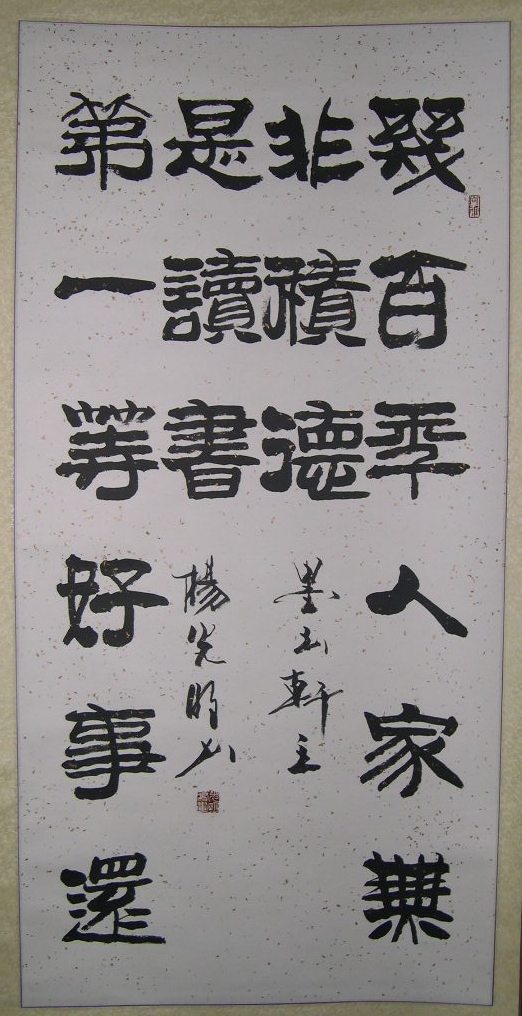 幾百年人家無
非積德
第一等好事還
是讀書
墨軒主
楊光明书